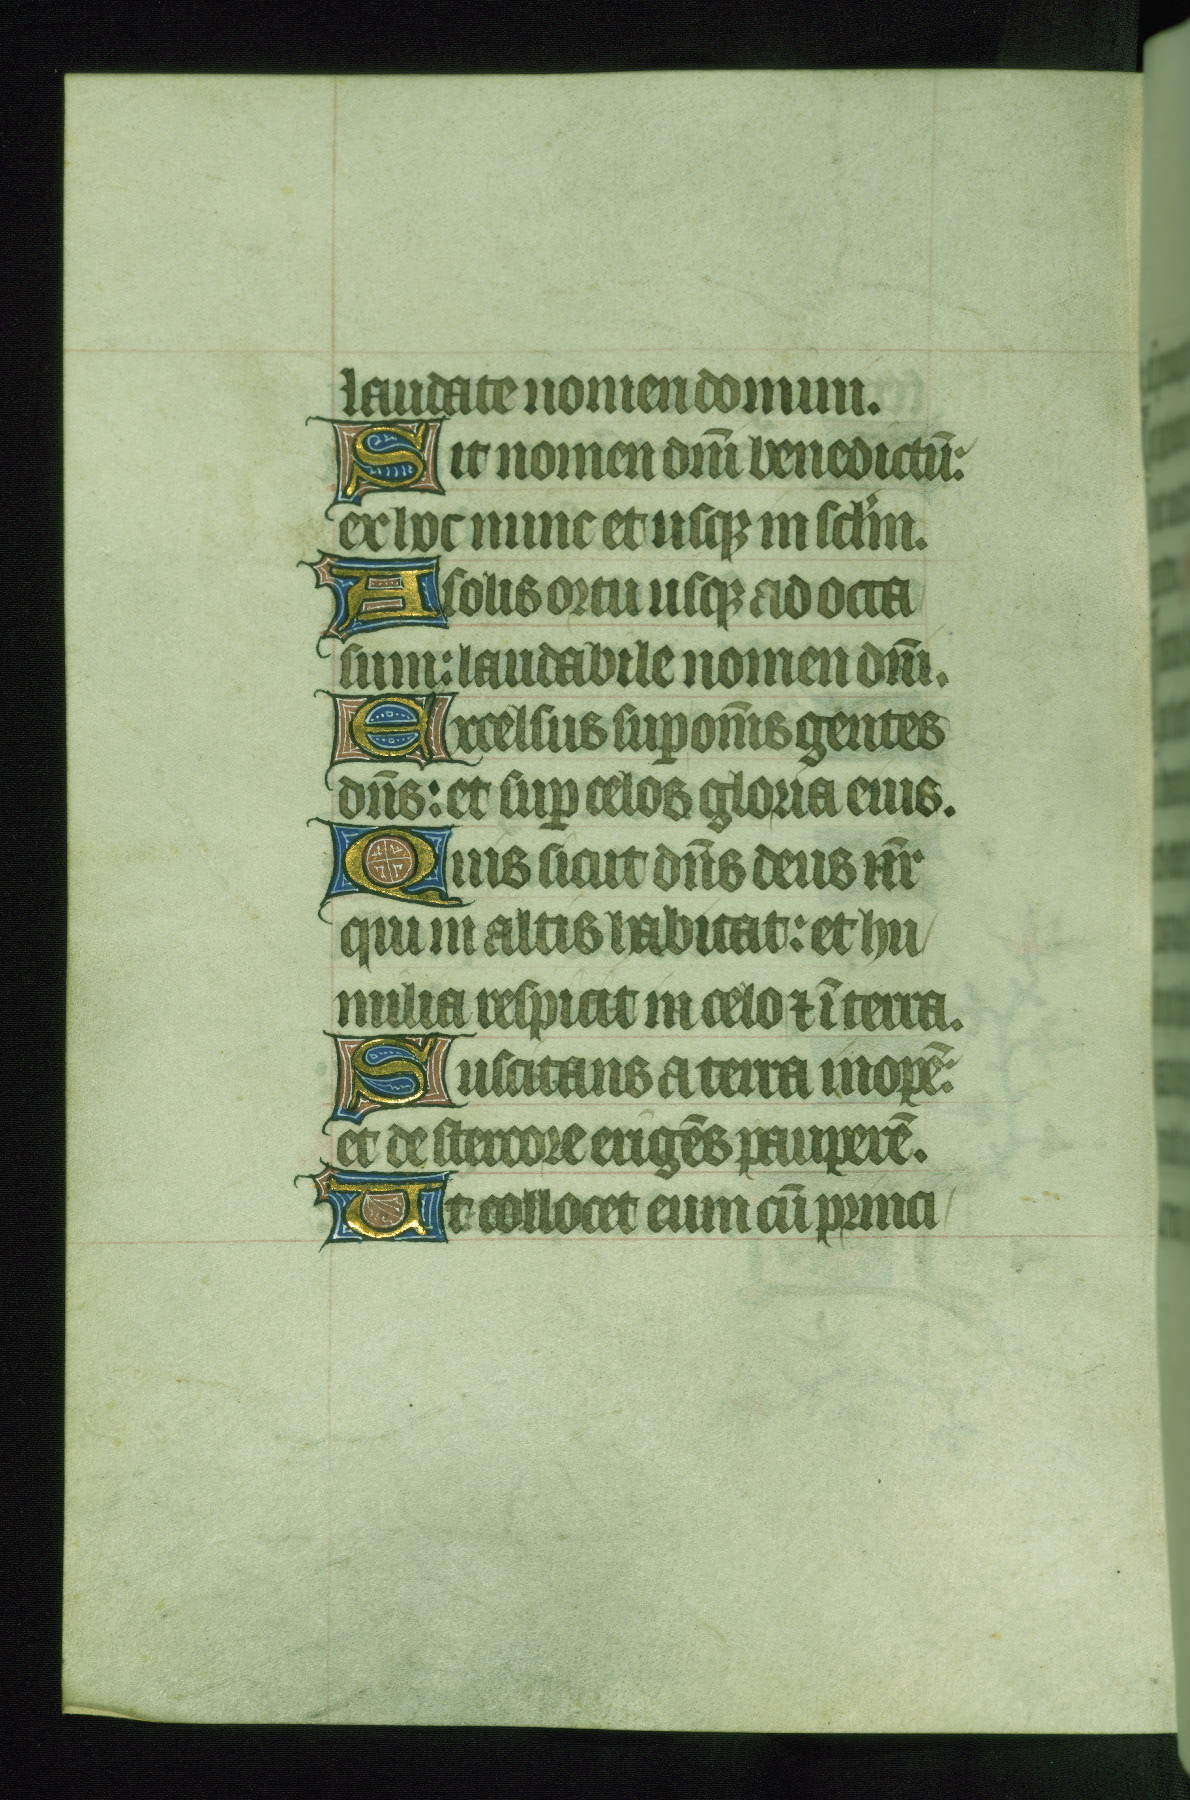 laudate nomen domini.
Sit nomen dñi benedictũ:
ex hoc nunc et usqꝫ in sclm̃.
A solis ortu usqꝫ ad occa
sum: laudabile nomen dñi.
Excelsus suꝑ om̃s gentes
dñs: et suꝑ celos gloria eius.
Quis sicut dñs deus nr̃
qui in altis habitat: et hu
milia respicit in celo ⁊ ĩ terra.
Suscitans a terra inopẽ:
et de stercore erigẽs pauperẽ.
Ut collocet eum cũ princi